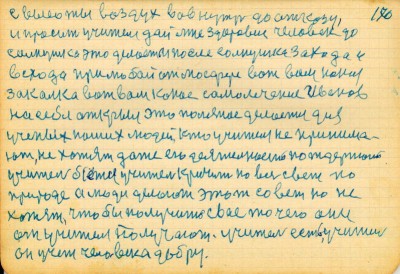 с высоты воздух вовнутрь до отказу, 196
и просит учителя дай мне здоровия человек до
солнушка это делаеть и после солнушка захода и
всхода при любой атмосфере вот вам какая
закалка вот вам какое самолечение Иванов
на себе открыл это понятное делаеть для
ученых наших людей, кто учителя не принима-
ют, не хотят даже его деятельность поддержать
учитель учитель кричит на весь свет по
природе а люди делают этот совет но не
хотят, чтобы получить свое то чего они
от учителя получают. учитель есть учитель
он учит человека добру.